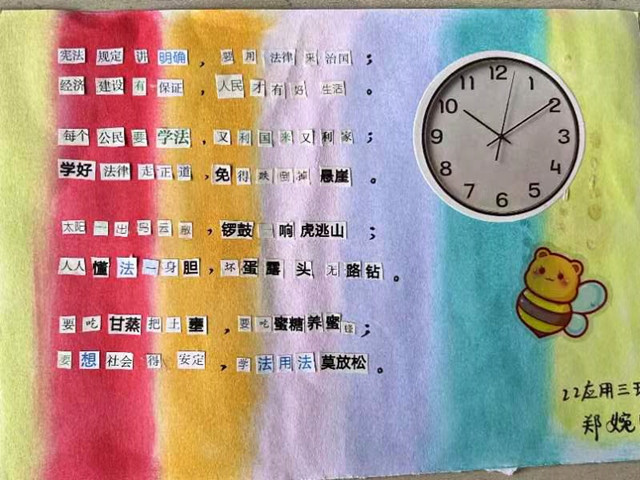 宪法 规定 讲 明确 ， 要 用 法律 来 治国 ；
经济 建设 有 保证 ， 人民 才 有 好 生活 。
每个 公民 要 学法 ， 又 利 国 来 又 利 家 ；
学好 法律 走 正 道 ， 免 得 跌 倒 掉 悬崖 。
太阳 一 出 乌 云 散 ， 锣鼓 一 响 虎逃山 ；
人人 懂 法 一 身 胆 ， 坏 蛋 露 头 无 路 钻 。
要 吃 甘蔗 把 土 壅 ， 要 吃 蜜糖 养 蜜 蜂 ；
要 想 社会 得 安定 ， 学 法 用 法 莫放松 。
12
1
2
3
4
5
6
7
8
9
10
11
22应用三班
郑 婉